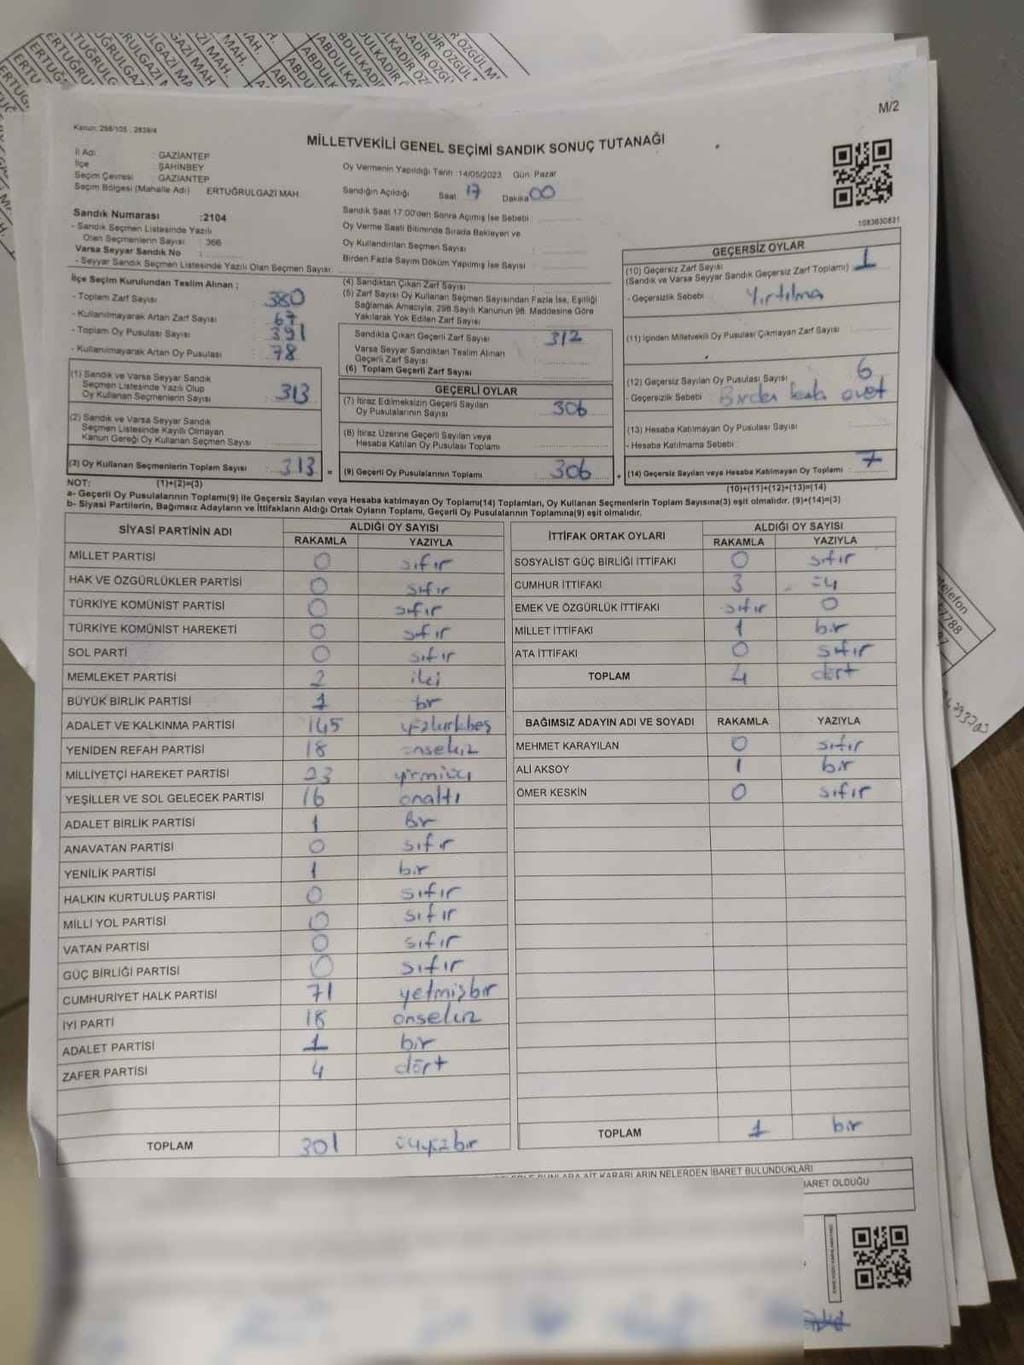 M/2
Kanun: 298/105 , 2839/4
MİLLETVEKİLİ GENEL SEÇİMİ SANDIK SONUÇ TUTANAĞI
İl Adı : GAZİANTEP
İlçe : ŞAHİNBEY
Seçim Çevresi : GAZİANTEP
Seçim Bölgesi (Mahalle Adı) : ERTUĞRULGAZİ MAH.
Oy Vermenin Yapıldığı Tarih :14/05/2023 Gün: Pazar
Sandığın Açıldığı Saat: 17 Dakika: 00
Sandık Numarası :2104
- Sandık Seçmen Listesinde Yazılı
Olan Seçmenlerin Sayısı : 366
Varsa Seyyar Sandık No :
- Seyyar Sandık Seçmen Listesinde Yazılı Olan Seçmen Sayısı:
Sandık Saat 17.00'den Sonra Açılmış İse Sebebi
Oy Verme Saati Bitiminde Sırada Bekleyen ve
Oy Kullandırılan Seçmen Sayısı
Birden Fazla Sayım Döküm Yapılmış İse Sayısı
1083630831
İlçe Seçim Kurulundan Teslim Alınan ;
- Toplam Zarf Sayısı : 380
- Kullanılmayarak Artan Zarf Sayısı : 67
- Toplam Oy Pusulası Sayısı : 391
- Kullanılmayarak Artan Oy Pusulası : 78
(1) Sandık ve Varsa Seyyar Sandık
Seçmen Listesinde Yazılı Olup
Oy Kullanan Seçmenlerin Sayısı : 313
(2) Sandık ve Varsa Seyyar Sandık
Seçmen Listesinde Kayıtlı Olmayan
Kanun Gereği Oy Kullanan Seçmen Sayısı:
(3) Oy Kullanan Seçmenlerin Toplam Sayısı : 313 =
(4) Sandıktan Çıkan Zarf Sayısı
(5) Zarf Sayısı Oy Kullanan Seçmen Sayısından Fazla İse, Eşitliği
Sağlamak Amacıyla, 298 Sayılı Kanunun 98. Maddesine Göre
Yakılarak Yok Edilen Zarf Sayısı
Sandıkta Çıkan Geçerli Zarf Sayısı : 312
Varsa Seyyar Sandıktan Teslim Alınan
Geçerli Zarf Sayısı
(6) Toplam Geçerli Zarf Sayısı
GEÇERLİ OYLAR
(7) İtiraz Edilmeksizin Geçerli Sayılan
Oy Pusulalarının Sayısı : 306
(8) İtiraz Üzerine Geçerli Sayılan veya
Hesaba Katılan Oy Pusulası Toplamı
(9) Geçerli Oy Pusulalarının Toplamı : 306 +
GEÇERSİZ OYLAR
(10) Geçersiz Zarf Sayısı
(Sandık ve Varsa Seyyar Sandık Geçersiz Zarf Toplamı) : 1
- Geçersizlik Sebebi : Yırtılma
(11) İçinden Milletvekili Oy Pusulası Çıkmayan Zarf Sayısı
(12) Geçersiz Sayılan Oy Pusulası Sayısı : 6
- Geçersizlik Sebebi :
(13) Hesaba Katılmayan Oy Pusulası Sayısı :
- Hesaba Katılmama Sebebi :
(14) Geçersiz Sayılan veya Hesaba Katılmayan Oy Toplamı : 7
NOT: (1)+(2)=(3)
(10)+(11)+(12)+(13)=(14)
a- Geçerli Oy Pusulalarının Toplamı(9) ile Geçersiz Sayılan veya Hesaba katılmayan Oy Toplamı(14) Toplamları, Oy Kullanan Seçmenlerin Toplam Sayısına(3) eşit olmalıdır. (9)+(14)=(3)
b- Siyasi Partilerin, Bağımsız Adayların ve İttifakların Aldığı Ortak Oyların Toplamı, Geçerli Oy Pusulalarının Toplamına(9) eşit olmalıdır.
SİYASİ PARTİNİN ADI ALDIĞI OY SAYISI
RAKAMLA YAZIYLA
MİLLET PARTİSİ 0 sıfır
HAK VE ÖZGÜRLÜKLER PARTİSİ 0 sıfır
TÜRKİYE KOMÜNİST PARTİSİ 0 sıfır
TÜRKİYE KOMÜNİST HAREKETİ 0 sıfır
SOL PARTİ 0 sıfır
MEMLEKET PARTİSİ 2 iki
BÜYÜK BİRLİK PARTİSİ 1 bir
ADALET VE KALKINMA PARTİSİ 145 yüzkırkbeş
YENİDEN REFAH PARTİSİ 18 onsekiz
MİLLİYETÇİ HAREKET PARTİSİ 23 yirmiüç
YEŞİLLER VE SOL GELECEK PARTİSİ 16 onaltı
ADALET BİRLİK PARTİSİ 1 Bir
ANAVATAN PARTİSİ 0 sıfır
YENİLİK PARTİSİ 1 bir
HALKIN KURTULUŞ PARTİSİ 0 sıfır
MİLLİ YOL PARTİSİ 0 sıfır
VATAN PARTİSİ 0 sıfır
GÜÇ BİRLİĞİ PARTİSİ 0 sıfır
CUMHURİYET HALK PARTİSİ 71 yetmişbir
İYİ PARTİ 18 onsekiz
ADALET PARTİSİ 1 bir
ZAFER PARTİSİ 4 dört
TOPLAM 301 üçyüzbir
İTTİFAK ORTAK OYLARI ALDIĞI OY SAYISI
RAKAMLA YAZIYLA
SOSYALİST GÜÇ BİRLİĞİ İTTİFAKI 0 sıfır
CUMHUR İTTİFAKI 3 üç
EMEK VE ÖZGÜRLÜK İTTİFAKI sıfır 0
MİLLET İTTİFAKI 1 bir
ATA İTTİFAKI 0 sıfır
TOPLAM 4 dört
BAĞIMSIZ ADAYIN ADI VE SOYADI RAKAMLA YAZIYLA
MEHMET KARAYILAN 0 sıfır
ALİ AKSOY 1 bir
ÖMER KESKİN 0 sıfır
TOPLAM 1 bir
KARARLARIN NELERDEN İBARET BULUNDUKLARI
OLDUĞU